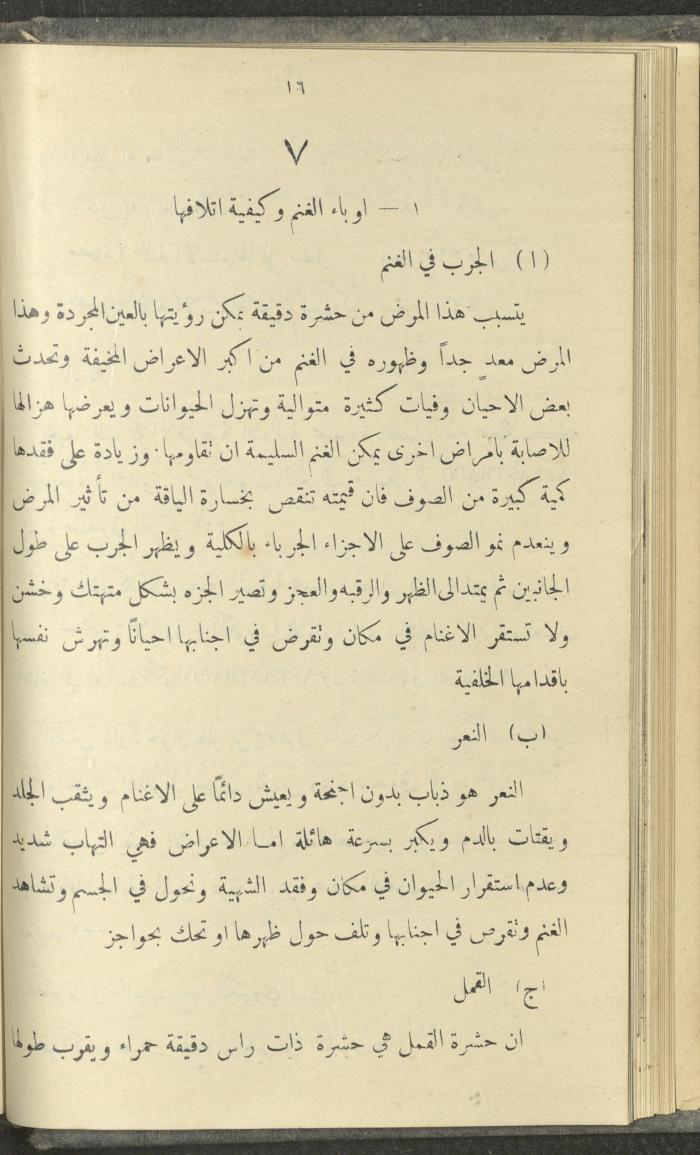 ١٦
٧
١ — اوباء الغنم وكيفية اتلافها
(ا) الجرب في الغنم
يتسبب هذا المرض من حشرة دقيقة يمكن رؤيتها بالعين المجردة وهذا
المرض معدٍ جداً وظهوره في الغنم من اكبر الاعراض المخيفة وتحدث
بعض الاحيان وفيات كثيرة متوالية وتهزل الحيوانات ويعرضها هزالها
للاصابة بامراض اخرى يمكن الغنم السليمة ان تقاومها . وزيادة على فقدها
كمية كبيرة من الصوف فان قيمته تنقص بخسارة الياقة من تأثير المرض
وينعدم نمو الصوف على الاجزاء الجرباء بالكلية ويظهر الجرب على طول
الجانبين ثم يمتد الى الظهر والرقبه والعجز وتصير الجزه بشكل متهتك وخشن
ولا تستقر الاغنام في مكان وتقرض في اجنابها احيانًا وتهرش نفسها
باقدامها الخلفية
(ب) النعر
النعر هو ذباب بدون اجنحة ويعيش دائمًا على الاغنام ويثقب الجلد
ويقتات بالدم ويكبر بسرعة هائلة اما الاعراض فهي التهاب شديد
وعدم استقرار الحيوان في مكان وفقد الشهية ونحول في الجسم وتشاهد
الغنم وتقرص في اجنابها وتلف حول ظهرها او تحك بحواجز
(ج) القمل
ان حشرة القمل هي حشرة ذات راس دقيقة حمراء ويقرب طولها